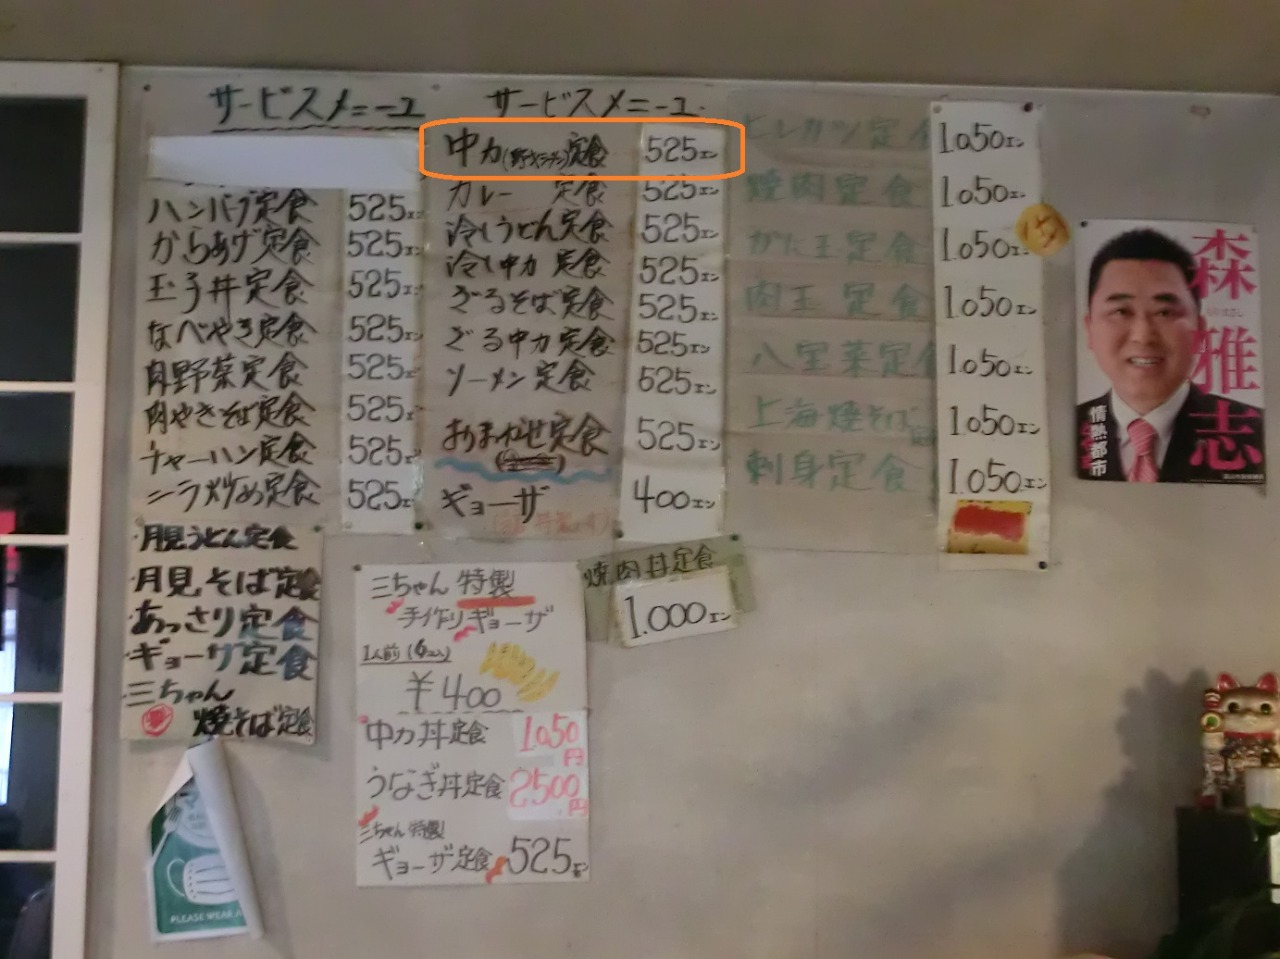 サービスメニュー
ハンバグ定食 525エン
からあげ定食 525エン
玉子丼定食 525エン
なべやき定食 525エン
肉野菜定食 525エン
肉やきそば定食 525エン
チャーハン定食 525エン
ニラ炒め定食 525エン
サービスメニュー
中カ(野サイラーメン)定食 525エン
カレー 定食 525エン
冷しうどん定食 525エン
冷し中カ 定食 525エン
ざるそば定食 525エン
ざる中カ定食 525エン
ソーメン定食 525エン
おまかせ定食 525エン
ギョーザ 400エン
ヒレカツ定食 1.050エン
焼肉定食 1.050エン
かに玉定食 1.050エン
肉玉定食 1.050エン
八宝菜定食 1.050エン
上海焼そば定食 1.050エン
刺身定食 1.050エン
月見うどん定食
月見そば定食
あっさり定食
ギョーザ定食
三ちゃん
焼そば定食
三ちゃん特製
手作りギョーザ
1人前(6コ入)
¥400
中カ丼定食 1050円
うなぎ丼定食 2500円
三ちゃん特製
ギョーザ定食 525エン
焼肉丼定食
1.000エン
森雅志
情熱都市
PLEASE WEAR A